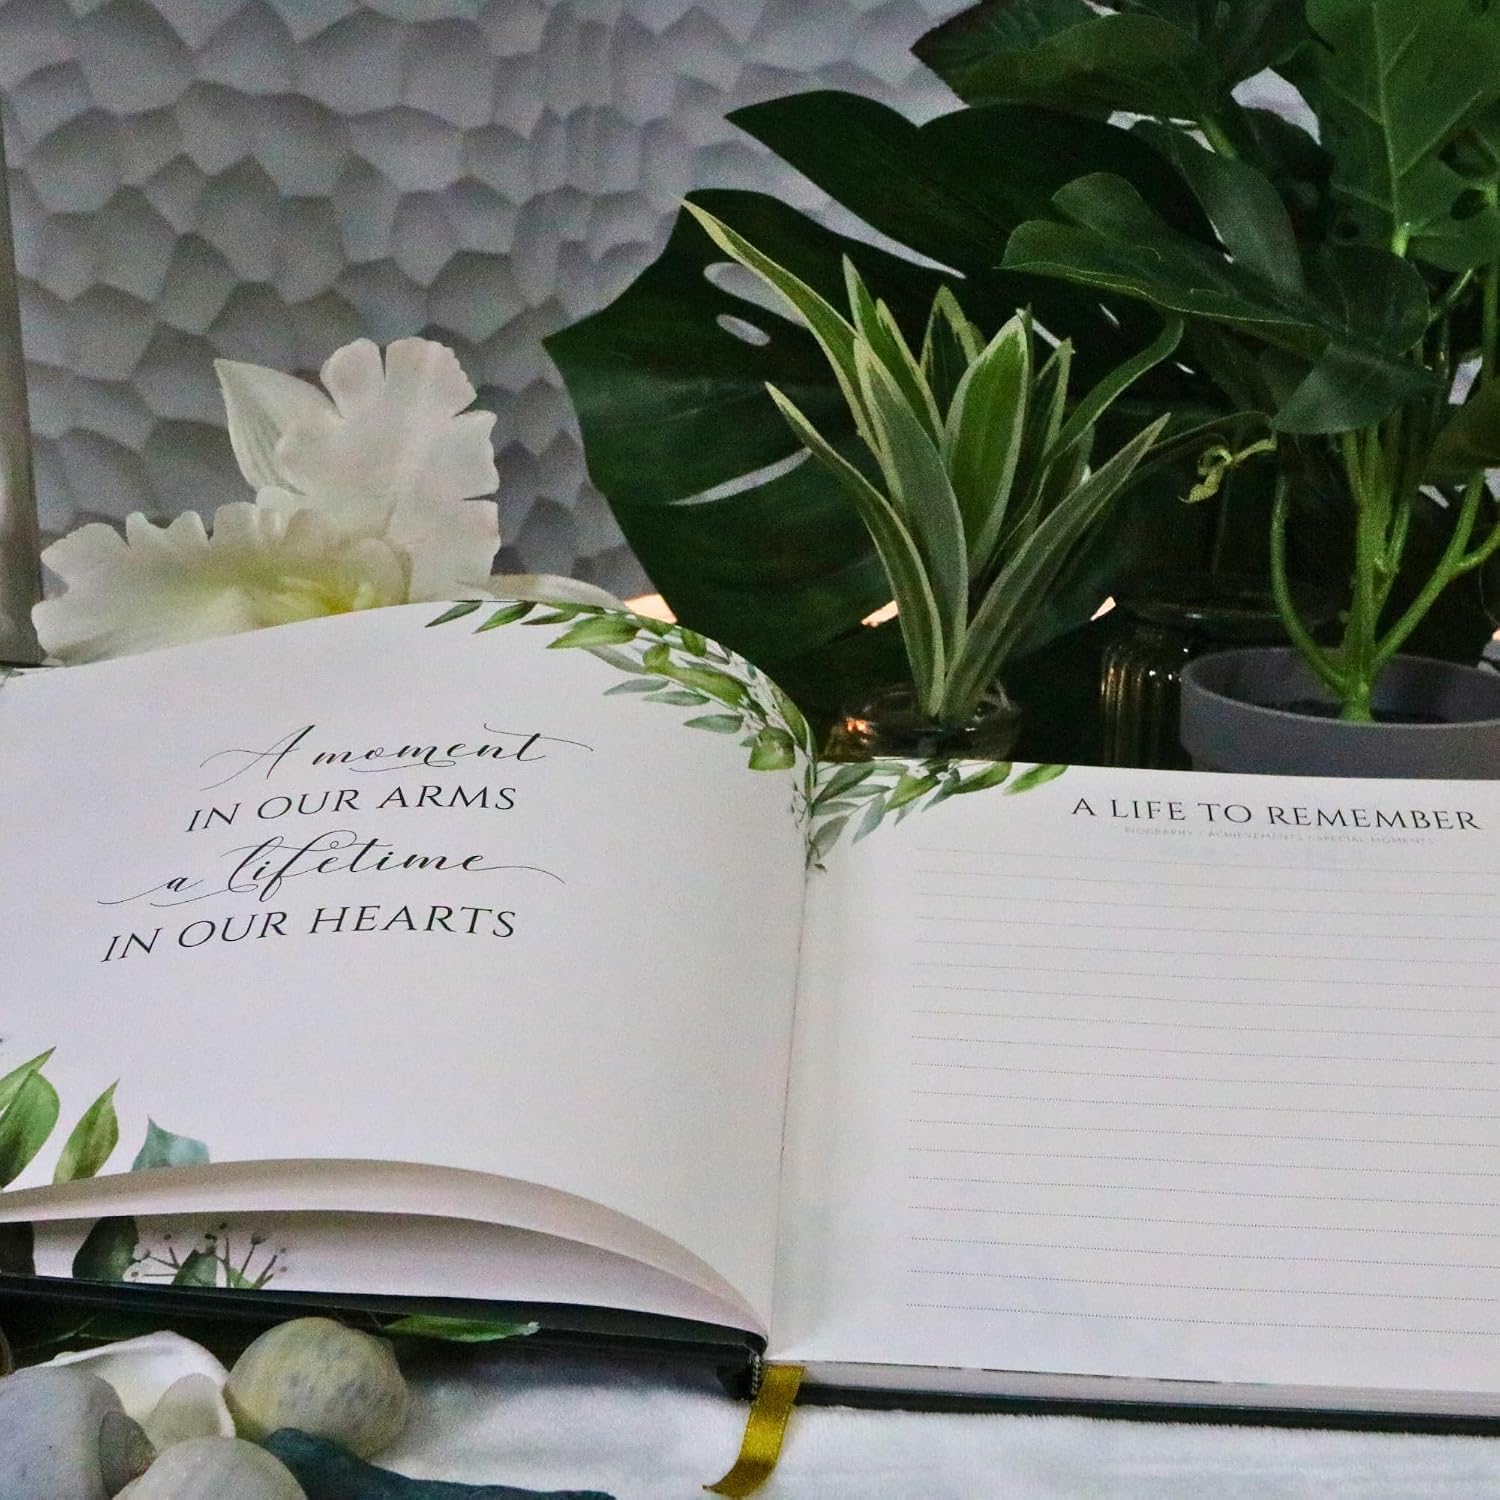 A moment
IN OUR ARMS
a lifetime
IN OUR HEARTS
A LIFE TO REMEMBER
BIOGRAPHY • ACHIEVEMENTS • SPECIAL MOMENTS